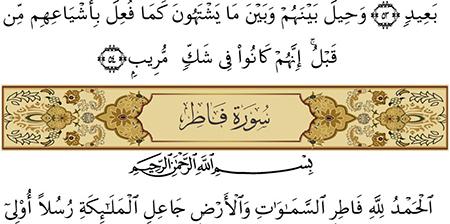 بَعِيدٍ ۝٥٣ وَحِيلَ بَيْنَهُمْ وَبَيْنَ مَا يَشْتَهُونَ كَمَا فُعِلَ بِأَشْيَاعِهِم مِّن
قَبْلُ ۚ إِنَّهُمْ كَانُوا۟ فِى شَكٍّ مُّرِيبٍۭ ۝٥٤
سُورَةُ فَاطِرٍ
بِسْمِ ٱللَّهِ ٱلرَّحْمَٰنِ ٱلرَّحِيمِ
ٱلْحَمْدُ لِلَّهِ فَاطِرِ ٱلسَّمَٰوَٰتِ وَٱلْأَرْضِ جَاعِلِ ٱلْمَلَٰٓئِكَةِ رُسُلًا أُو۟لِىٓ